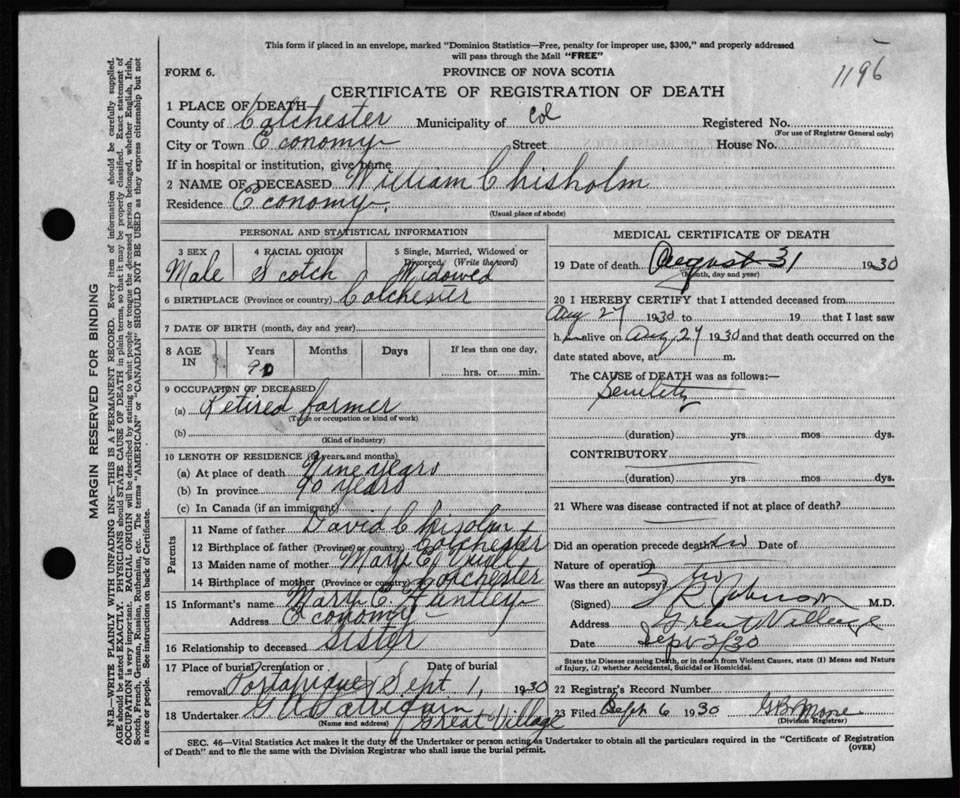 This form if placed in an envelope, marked "Dominion Statistics—Free, penalty for improper use, $300," and properly addressed
will pass through the Mail "FREE"
FORM 6. PROVINCE OF NOVA SCOTIA 1196
CERTIFICATE OF REGISTRATION OF DEATH
1 PLACE OF DEATH
County of Colchester Municipality of Col Registered No.
(For use of Registrar General only)
City or Town Economy Street House No.
If in hospital or institution, give name
2 NAME OF DECEASED William Chisholm
Residence Economy
(Usual place of abode)
PERSONAL AND STATISTICAL INFORMATION
3 SEX 4 RACIAL ORIGIN 5 Single, Married, Widowed or
Divorced (Write the word)
Male Scotch Widowed
6 BIRTHPLACE (Province or country) Colchester
7 DATE OF BIRTH (month, day and year)
8 AGE IN Years Months Days If less than one day,
90 hrs. or min.
9 OCCUPATION OF DECEASED
(a) Retired farmer
(Trade or occupation or kind of work)
(b)
(Kind of industry)
10 LENGTH OF RESIDENCE (in years and months)
(a) At place of death Nine years
(b) In province 90 years
(c) In Canada (if an immigrant)
Parents
11 Name of father David Chisolm
12 Birthplace of father (Province or country) Colchester
13 Maiden name of mother Mary
14 Birthplace of mother (Province or country) Colchester
15 Informant's name Mary E
Address Economy
16 Relationship to deceased Sister
17 Place of burial, cremation or Date of burial
removal Portapique Sept. 1, 1930
18 Undertaker Great Village
(Name and address)
MEDICAL CERTIFICATE OF DEATH
19 Date of death August 31 1930
(Month, day and year)
20 I HEREBY CERTIFY that I attended deceased from
Aug 27 1930 to 19 that I last saw
him alive on Aug 27 1930 and that death occurred on the
date stated above, at m.
The CAUSE of DEATH was as follows:—
Senility
(duration) yrs. mos. dys.
CONTRIBUTORY
(duration) yrs. mos. dys.
21 Where was disease contracted if not at place of death?
Did an operation precede death no Date of
Nature of operation
Was there an autopsy? no
(Signed) Johnson M.D.
Address Great Village
Date Sept 2/30
State the Disease causing Death, or in death from Violent Causes, state (1) Means and Nature
of Injury, (2) whether Accidental, Suicidal or Homicidal.
22 Registrar's Record Number
23 Filed Sept 6 1930 G B Moore
(Division Registrar)
SEC. 46—Vital Statistics Act makes it the duty of the Undertaker or person acting as Undertaker to obtain all the particulars required in the "Certificate of Registration
of Death" and to file the same with the Division Registrar who shall issue the burial permit. (OVER)
MARGIN RESERVED FOR BINDING
N.B.—WRITE PLAINLY WITH UNFADING INK—THIS IS A PERMANENT RECORD. Every item of information should be carefully supplied.
AGE should be stated EXACTLY. PHYSICIANS should STATE CAUSE OF DEATH in plain terms, so that it may be properly classified. Exact statement of
OCCUPATION is very important. RACIAL ORIGIN will be described by stating to what people or tongue the deceased person belonged, whether English, Irish,
Scotch, French, German, Russian, Ruthenian, etc. The terms "AMERICAN" or "CANADIAN" SHOULD NOT BE USED as they express citizenship but not
a race or people. See instructions on back of Certificate.